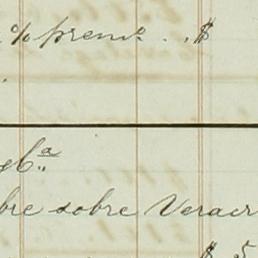 % prem.º .. $
bre sobre Veracr
$ 5